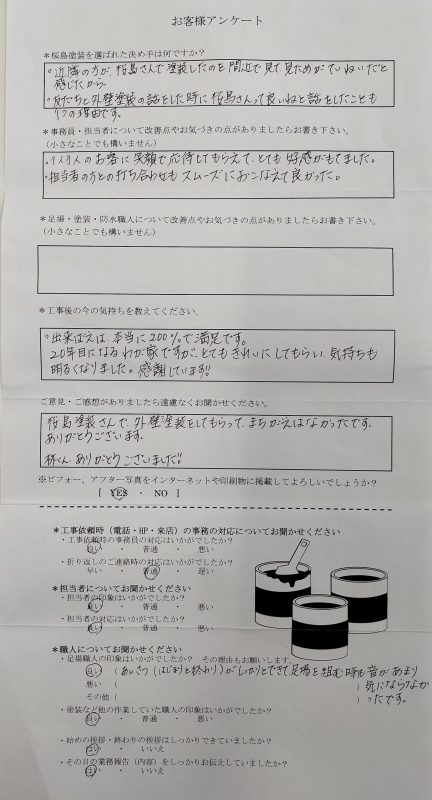 お客様アンケート
＊桜島塗装を選ばれた決め手は何ですか？
・近隣の方が、桜島さんで塗装したのを間近で見て見ためがていねいだと
感じたから。
・友だちと外壁塗装の話をした時に桜島さんって良いねと話をしたことも
1つの理由です。
＊事務員・担当者について改善点やお気づきの点がありましたらお書き下さい。
（小さなことでも構いません）
・1人1人のお客に笑顔で応待してもらえて、とても好感がもてました。
・担当者の方との打ち合わせもスムーズにおこなえて良かった。
＊足場・塗装・防水職人について改善点やお気づきの点がありましたらお書き下さい。
（小さなことでも構いません）
＊工事後の今の気持ちを教えてください。
・出来ばえは、本当に200%で満足です。
20年目になるわが家ですが、とてもきれいにしてもらい気持ちも
明るくなりました。感謝しています!!
ご意見・ご感想がありましたら遠慮なくお聞かせください。
桜島塗装さんで、外壁塗装をしてもらって、まちがえはなかったです。
ありがとうございます。
林くんありがとうございました!!
※ビフォー、アフター写真をインターネットや印刷物に掲載してよろしいでしょうか？
[ YES ・ NO ]
＊工事依頼時（電話・HP・来店）の事務の対応についてお聞かせください
・工事依頼時の事務員の対応はいかがでしたか？
良い ・ 普通 ・ 悪い
・折り返しのご連絡時の対応はいかがでしたか？
早い ・ 普通 ・ 遅い
＊担当者についてお聞かせください
・担当者の印象はいかがでしたか？
良い ・ 普通 ・ 悪い
・担当者の対応はいかがでしたか？
良い ・ 普通 ・ 悪い
＊職人についてお聞かせください
・足場職人の印象はいかがでしたか？ その理由もお願いします。
良い （あいさつ（はじまりと終わり）がしっかりとできて足場を組む時も音があまり
悪い （ ） 気にならなか
その他（ ） ったです。
・塗装など他の作業していた職人の印象はいかがでしたか？
良い ・ 普通 ・ 悪い
・始めの挨拶・終わりの挨拶はしっかりできていましたか？
はい ・ いいえ
・その日の業務報告（内容）をしっかりお伝えしていましたか？
はい ・ いいえ